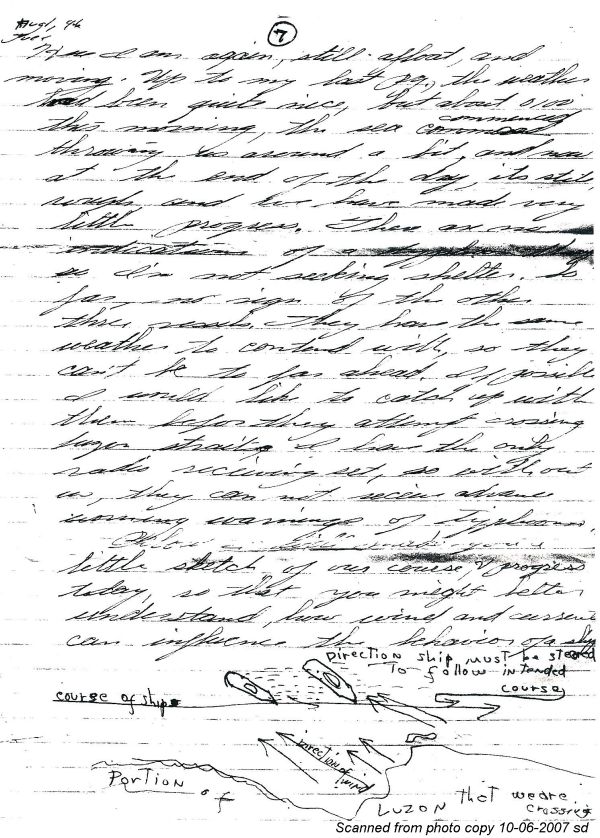 Aug 1, 46
7
Here I am again, still afloat, and
moving. Up to my last pg., the weather
had been quite nice, but about 0100
this morning, the sea commenced
throwing us around a bit, and now
at the end of the day, its still
rough and we have made very
little progress. There are no
indications of a
so I'm not seeking shelter. So
far no sign of the other
three vessels. They have the same
weather to contend with, so they
can't be to far ahead. If possible
I would like to catch up with
them before they attempt crossing
Luzon straits. I have the only
radio receiving set, so without
us, they can not receive advance
warning warnings of typhoons.
Below I will make you a
little sketch of our course, & progress
today, so that you might better
understand, how wind and current
can influence the behavior of a ship
Direction ship must be steered
To follow intended
course
course of ship
Direction of wind
Portion of
LUZON that we are
crossing
Scanned from photo copy 10-06-2007 sd